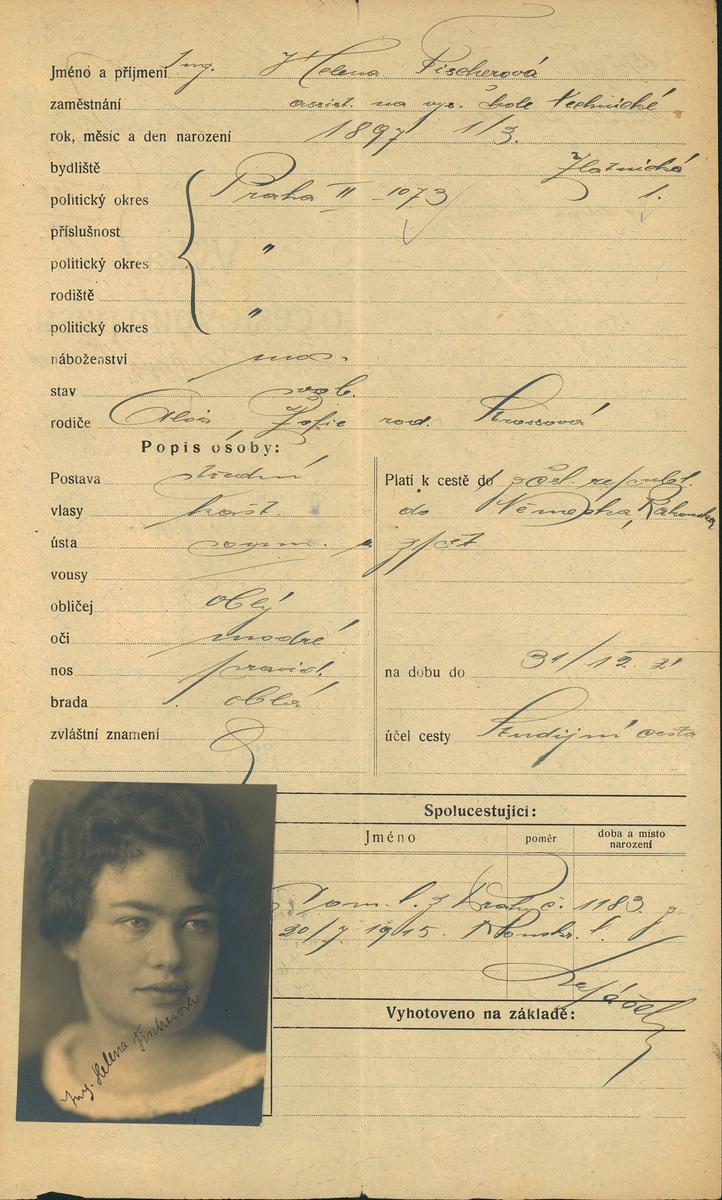 Jméno a příjmení Ing. Helena Fischerová
zaměstnání assist. na vys. škole technické
rok, měsíc a den narození 1897 1/3.
bydliště Zlatnická
politický okres Praha II 1073 1.
příslušnost
politický okres "
rodiště
politický okres "
náboženství
stav svob.
rodiče Alois Žofie rod. Krossová
Popis osoby:
Postava střední
Platí k cestě do
vlasy kašt.
do Německa, Rakouska
ústa
vousy
obličej oblý
oči modré
nos pravid.
na dobu do 31/12.
brada oblá
zvláštní znamení
účel cesty Studijní cesta
Spolucestující:
Jméno
poměr
doba a místo narození
Dom. l. z Prahy č. 1183
20/7 1915.
Vyhotoveno na základě:
Ing. Helena Fischerová